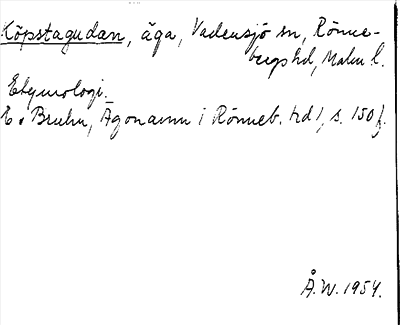 Köpstagudan, äga, Vadensjö sn, Rönne-
bergs hd, Malm l.
Etymologi.
E. Bruhn, Ägonamn i Rönneb. hd 1, s. 150 f.
Å.W. 1954.